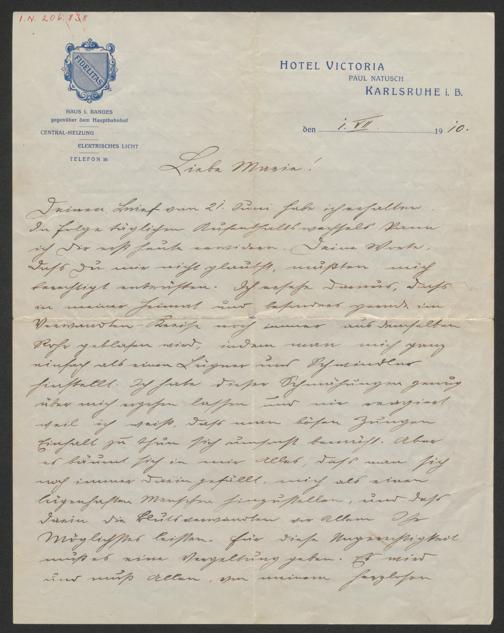 I.N. 206.838
FIDELITAS
HAUS I. RANGES
gegenüber dem Hauptbahnhof
CENTRAL-HEIZUNG
ELEKTRISCHES LICHT
TELEFON
HOTEL VICTORIA
PAUL NATUSCH
KARLSRUHE i. B.
den 1. VII. 1910.
Liebe Marie!
Deinen Brief vom 21. Juni habe ich erhalten
In Folge täglichen Aufenthaltswechsels kann
ich Dir erst heute erwidern. Deine Worte,
dass Du mir nicht glaubst, mußten mich
berechtigt entrüsten. Ich ersehe daraus, dass
in meiner Heimat und besonders gerade im
Verwandten Kreise noch immer aus demselben
Rohr geblasen wird, indem man mich ganz
einfach als einen Lügner und Schwindler
hinstellt. Ich habe dieser Schmähungen genug
über mich ergehen lassen und nie reagiert
weil ich weiß, dass man bösen Zungen
Einhalt zu thun sich umsonst bemüht. Aber
es bäumt sich in mir Alles, dass man sich
noch immer darin gefällt, mich als einen
lügenhaften Menschen hinzustellen, und dass
darin die Blutsverwandten vor Allem Ihr
Möglichstes leisten. Für diese Ungerechtigkeit
muß es eine Vergeltung geben. Es wird
und muß Allen, von meinem herzlosen